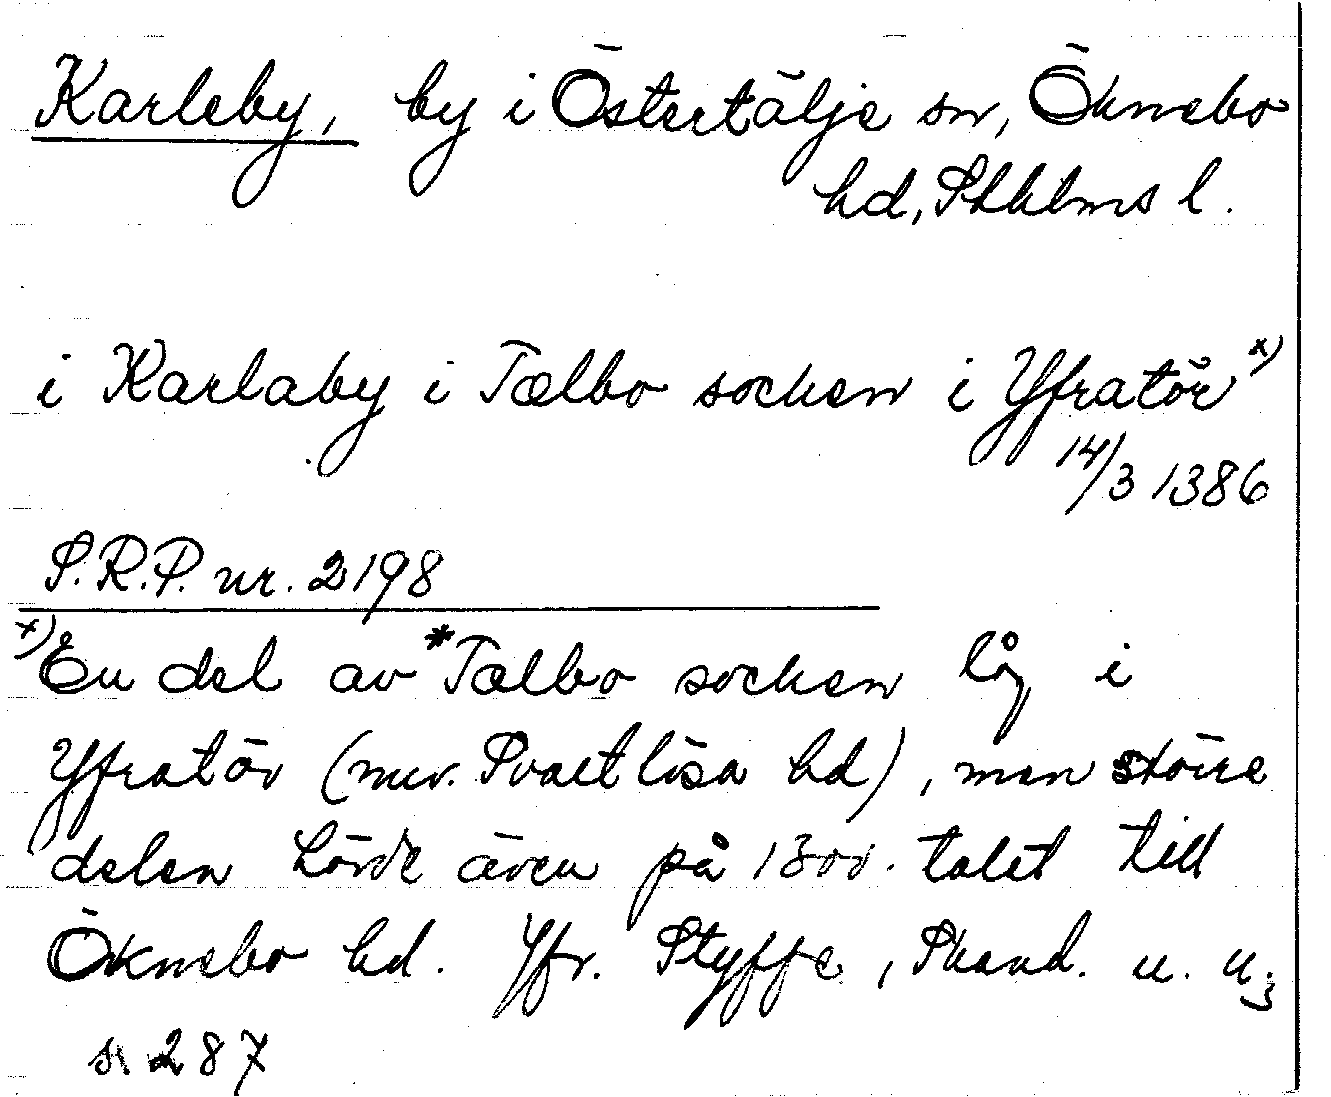 Karleby, by i Östertälje sn, Öknebo
hd, Sthlms l.
i Karlaby i Tælbo socken i Yfratör x)
14/3 1386
S.R.P. nr. 2198
x) En del av *Tælbo socken låg i
Yfratör (nuv. Svartlösa hd), men större
delen hörde även på 1300-talet till
Öknebo hd. Jfr. Styffe, Skand. u. u.3
s. 287